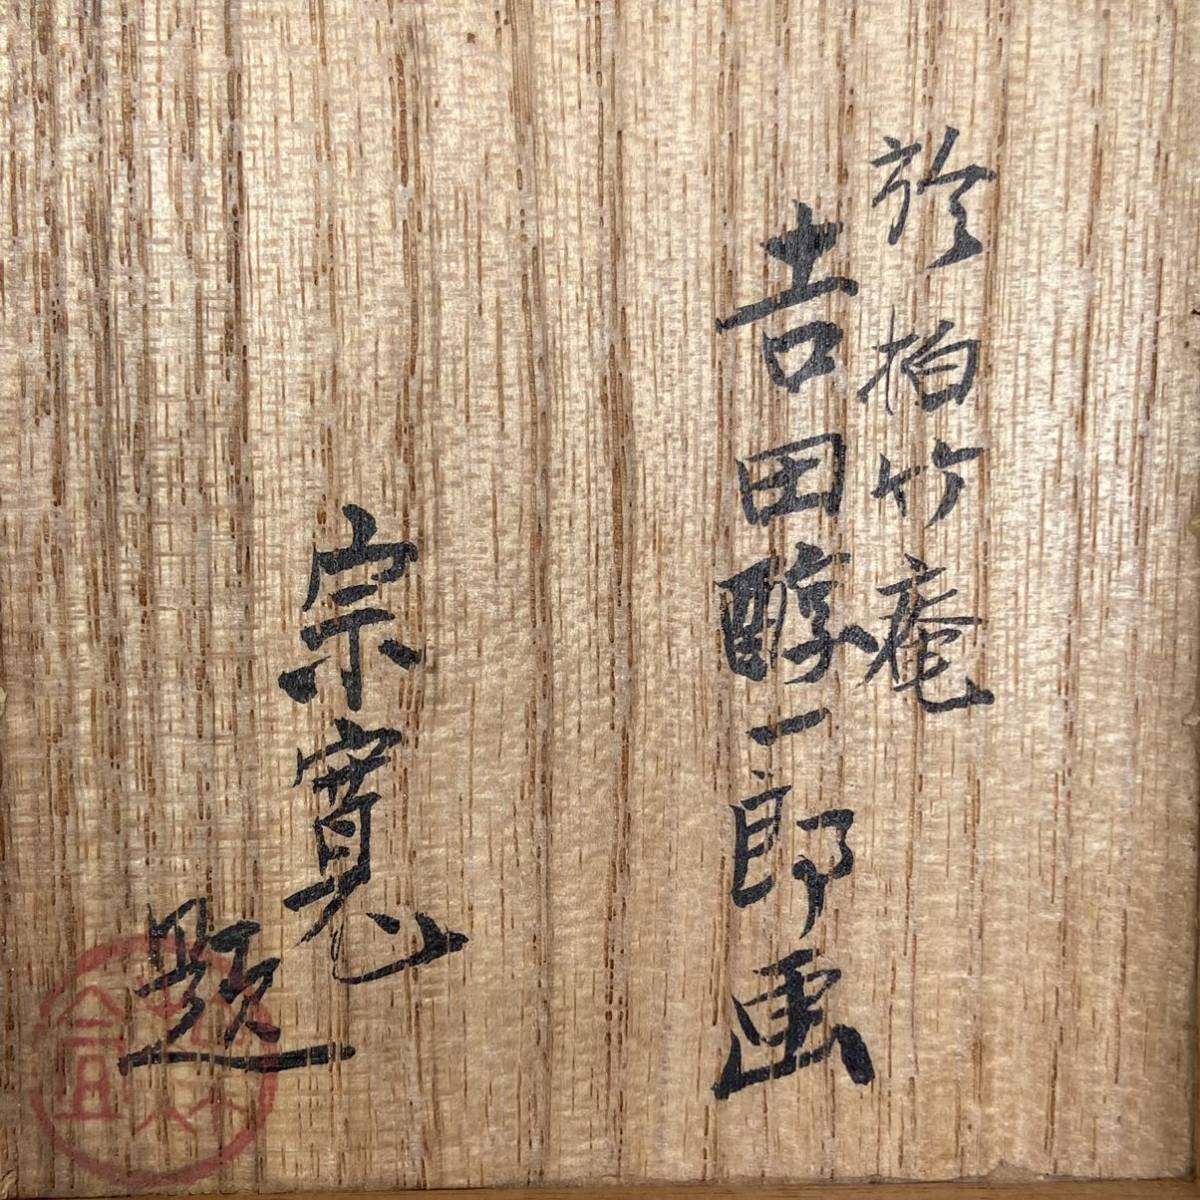 於柏竹庵
吉田醇一郎画
宗寛
題